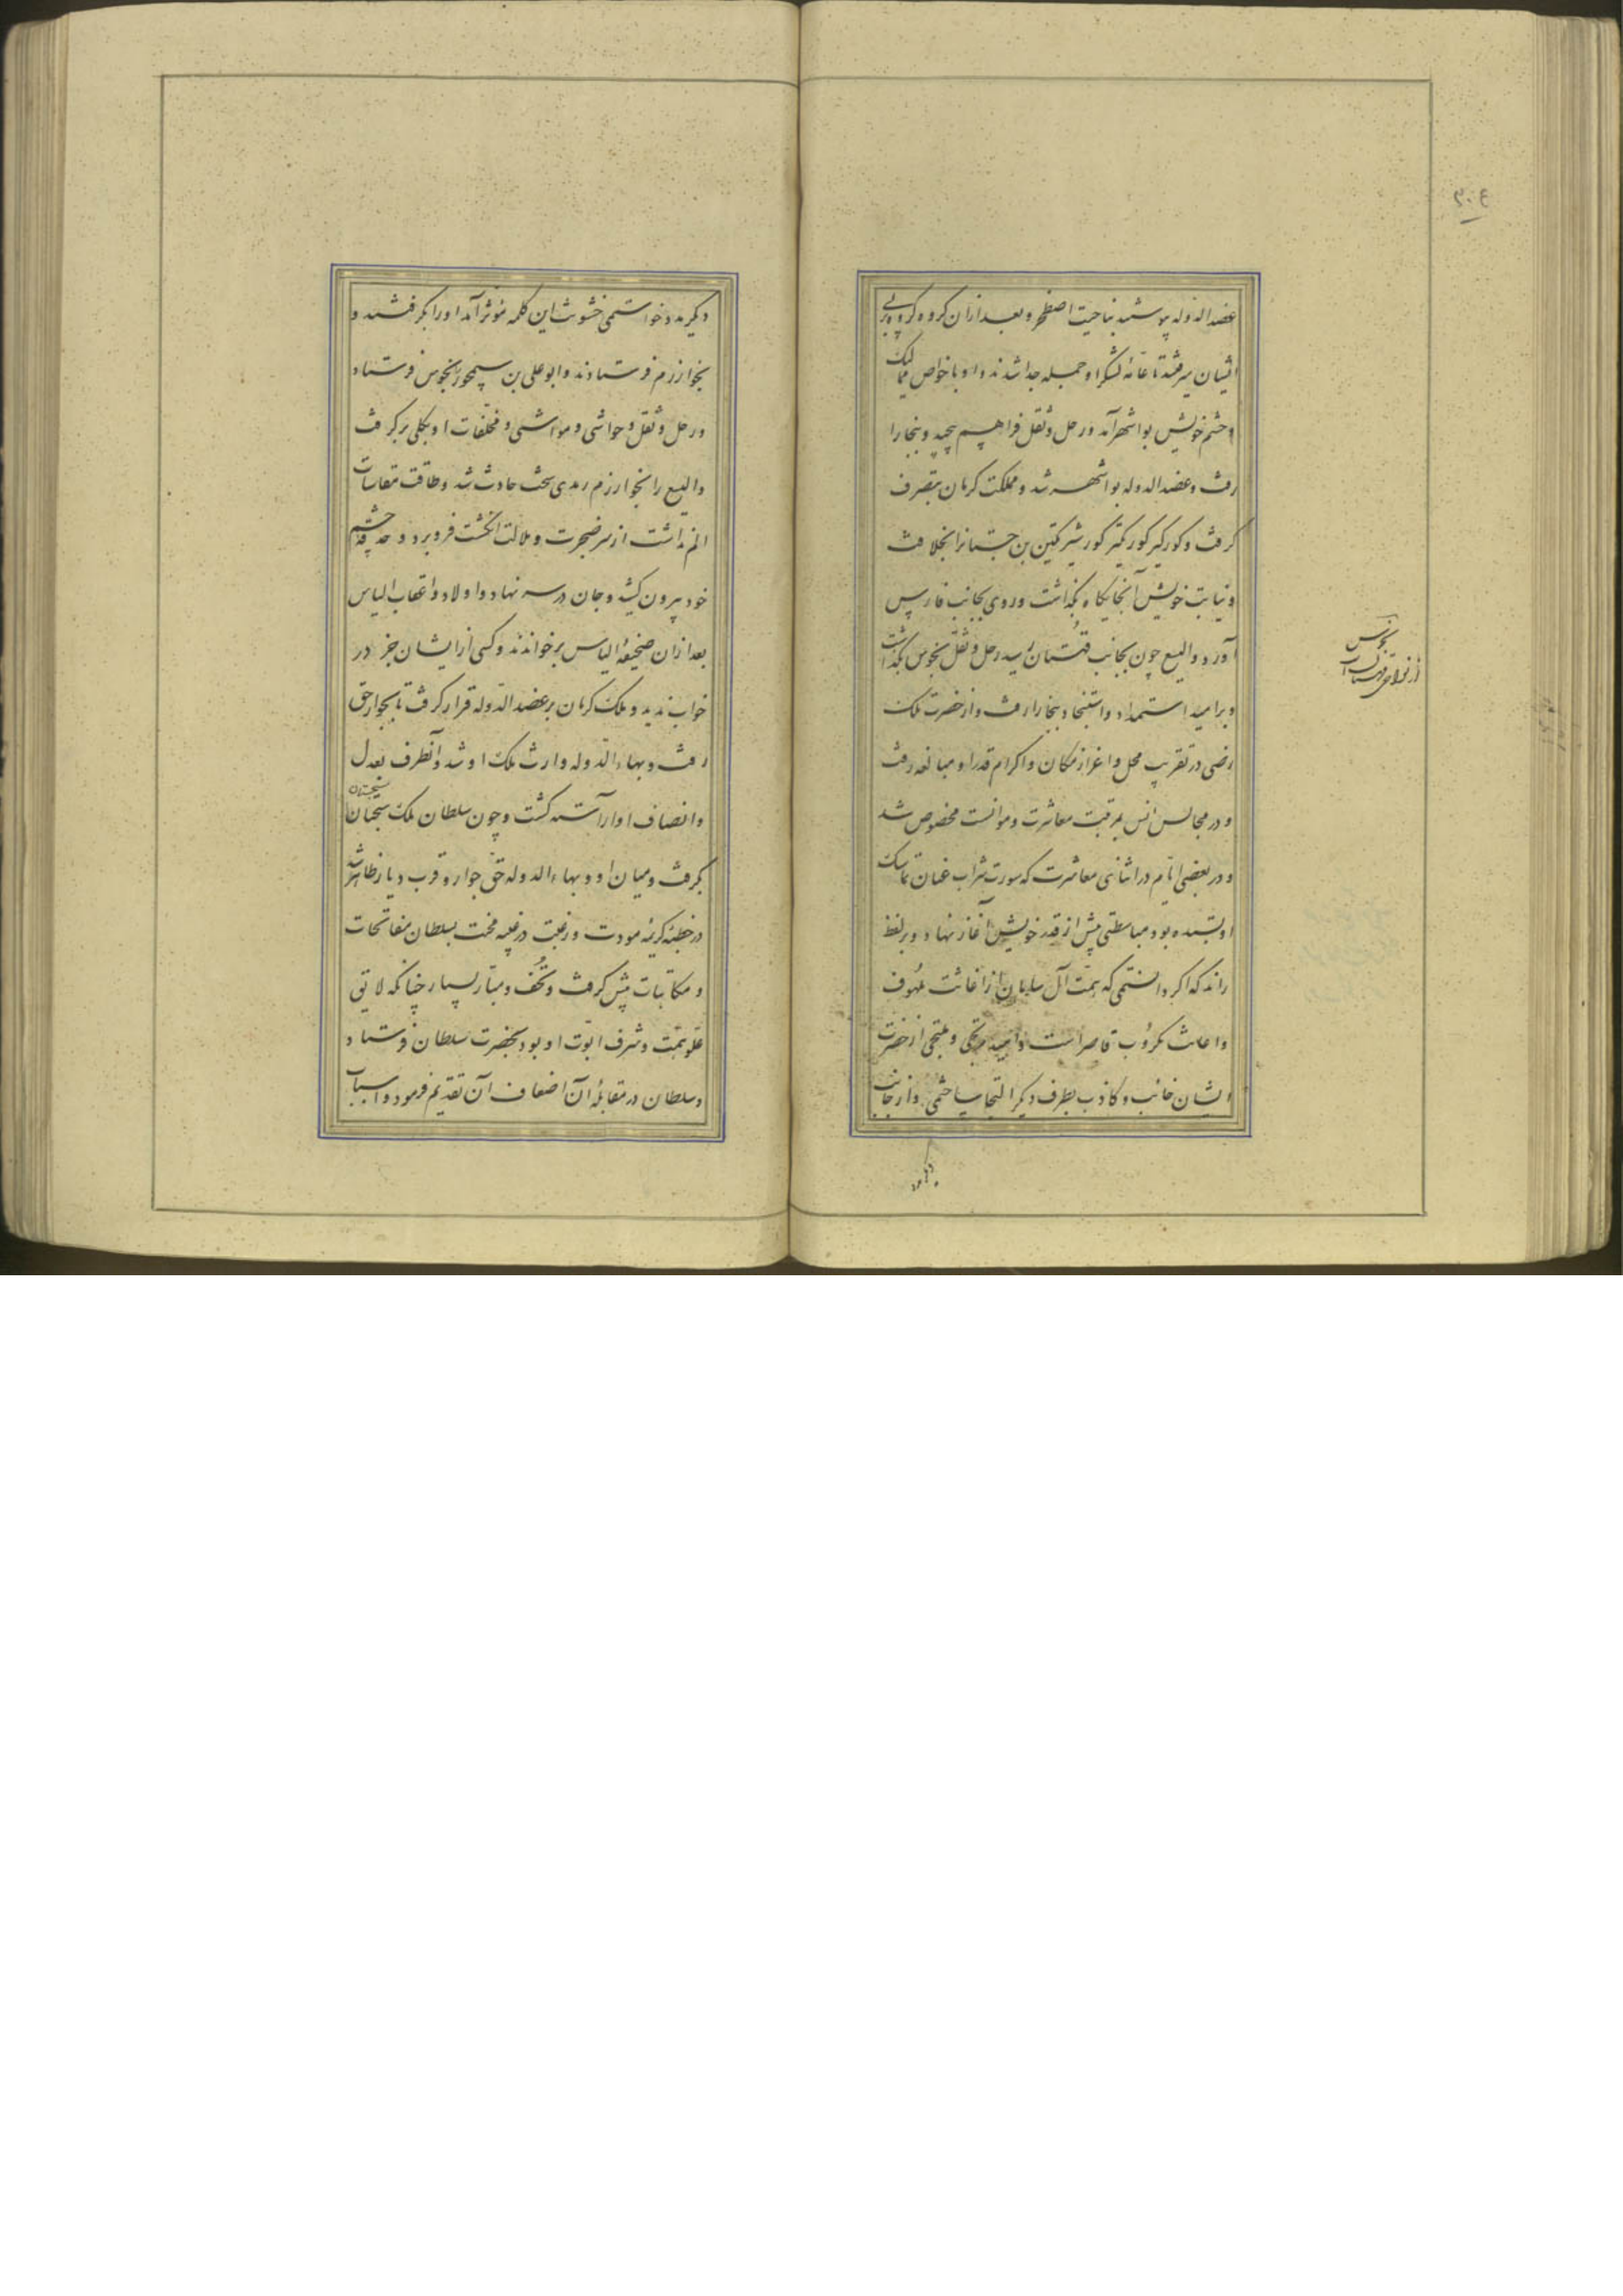 عضد الدوله پیوستند بناحیت اصطخر و بعد ازان کروه کروه بر پی
ایشان میرفتند تا عامّهٔ لشکر او جمله جدا شدند و او با خواص ممالیک
و حشم خویش بواشهر آمد و رحل و ثقل فراهم پیچید و ببخارا
رفت و عضد الدوله بواشهر شد و مملکت کرمان بتصرف
کرفت و کورکیر بن جستانرا بخلافت
و نیابت خویش آنجایکاه بگذاشت و روی بجانب فارس
آورد و الیسع چون بجانب قهستان رسید رحل و ثقل بخوس بگذاشت
و بر امید استمداد و استنجاد ببخارا رفت و از حضرت ملک
رضی در تقریب محل و اعزاز مکان و اکرام قدر او مبالغه رفت
و در مجالس انس بمرتبت معاشرت و موانست مخصوص شد
و در بعضی ایّام در اثنای معاشرت که سورت شراب عنان تماسک
او بستده بود مباسطتی بیش از قدر خویش آغاز نهاد و بر لفظ
راند که اکر دانستمی که همّت آل سامان از اغاثت ملهوف
و اعانت مکروب قاصر است و امید مرتجی و ملتجی از حضرت
ایشان خائب و کاذب بطرف دیکر التجا ساختمی و از جانب
بخوس
از نواحی قهستان است
دیکر مدد خواستمی خشونت این کلمه موثر آمد او را بکرفتند و
بخوارزم فرستادند و ابو علی بن سیمجور بخوس فرستاد
و رحل و ثقل و حواشی و مواشی و مخلفات او بکلی برکرفت
و الیسع را بخوارزم رمدی سخت حادث شد و طاقت مقاسات
الم نداشت از سر ضجرت و ملالت انکشت فرو برد و حدقه چشم
خود بیرون کشید و جان در سر نهاد و اولاد و اعقاب الیاس
بعد ازان صحیفهٔ الیاس برخواندند و کسی از ایشان جز در
خواب ندید و ملک کرمان بر عضد الدّوله قرار کرفت تا بجوار حق
رفت و بهاء الدّوله وارث ملک او شد و آنطرف بعدل
و انصاف او آراسته کشت و چون سلطان ملک سجستان
سجستان
بکرفت و میان او و بهاء الدوله حقّ جوار و قرب دیار ظاهر شد
در خطبه کریمهٔ مودت و رغبت در محبت بسلطان مفاتحات
و مکاتبات پیش کرفت و تُحَف و مبارّ بسیار چنانکه لایق
علو همّت و شرف ابوّت او بود بحضرت سلطان فرستاد
و سلطان در مقابلهٔ آن اضعاف آن تقدیم فرمود و اسباب